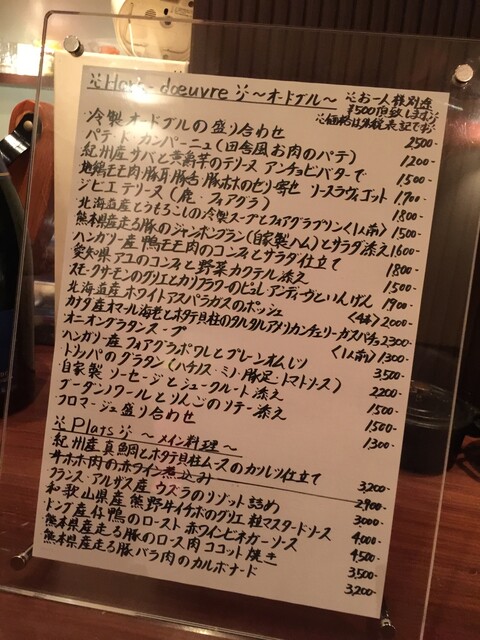 ※Hors-doeuvre※ ～オードブル～
※お一人様別途
¥500頂戴します※
※価格は外税表記です※
冷製オードブルの盛り合わせ 2500-
パテ・ド・カンパーニュ(田舎風お肉のパテ) 1200-
紀州産サバと黄爵芋のテリーヌ アンチョビバターで 1,500-
地鶏モモ肉・豚耳・豚舌・豚ホホのゼリー寄せ ソースラヴィゴット 1,700-
ジビエテリーヌ(鹿・フォアグラ) 1,800-
北海道産とうもろこしの冷製スープとフォアグラプリン<1人前> 1,500-
熊本県産走る豚のジャンボンブラン(自家製ハム)とサラダ添え 1,600-
ハンガリー産鴨モモ肉のコンフィとサラダ仕立て 1,800-
愛知県アユのコンフィと野菜カクテル添え 1,500-
スモークサーモンのグリエとカリフラワーのピュレアンディーヴといんげん 1,900-
北海道産ホワイトアスパラガスのポッシェ <4本> 2,000-
カナダ産オマール海老とホタテ貝柱のタルタルアメリカンチェリーガスパチョ 2,300-
オニオングラタンスープ <1人前> 1,300-
ハンガリー産フォアグラポワレとプレーンオムレツ 3,500-
トリッパのグラタン(ハチノス・ミノ・豚足・トマトソース) 2,200-
自家製ソーセージとシュークルート添え 1,500-
ブーダンノワールとりんごのソテー添え 1,500-
フロマージュ盛り合わせ 1,300-
※Plats※ ～メイン料理～
紀州産真鯛とホタテ貝柱ムースのカダイフ仕立て 3,200-
牛ホホ肉の赤ワイン煮込み 2,900-
フランス・アルザス産ウズラのリゾット詰め 3,000-
和歌山県産熊野牛イチボのグリエ 粒マスタードソース 4,000-
ドンブ産仔鴨のロースト赤ワインビネガーソース 4,500-
熊本県産走る豚のロース肉ココット焼き 3,500-
熊本県産走る豚バラ肉のカルボナード 3,200-